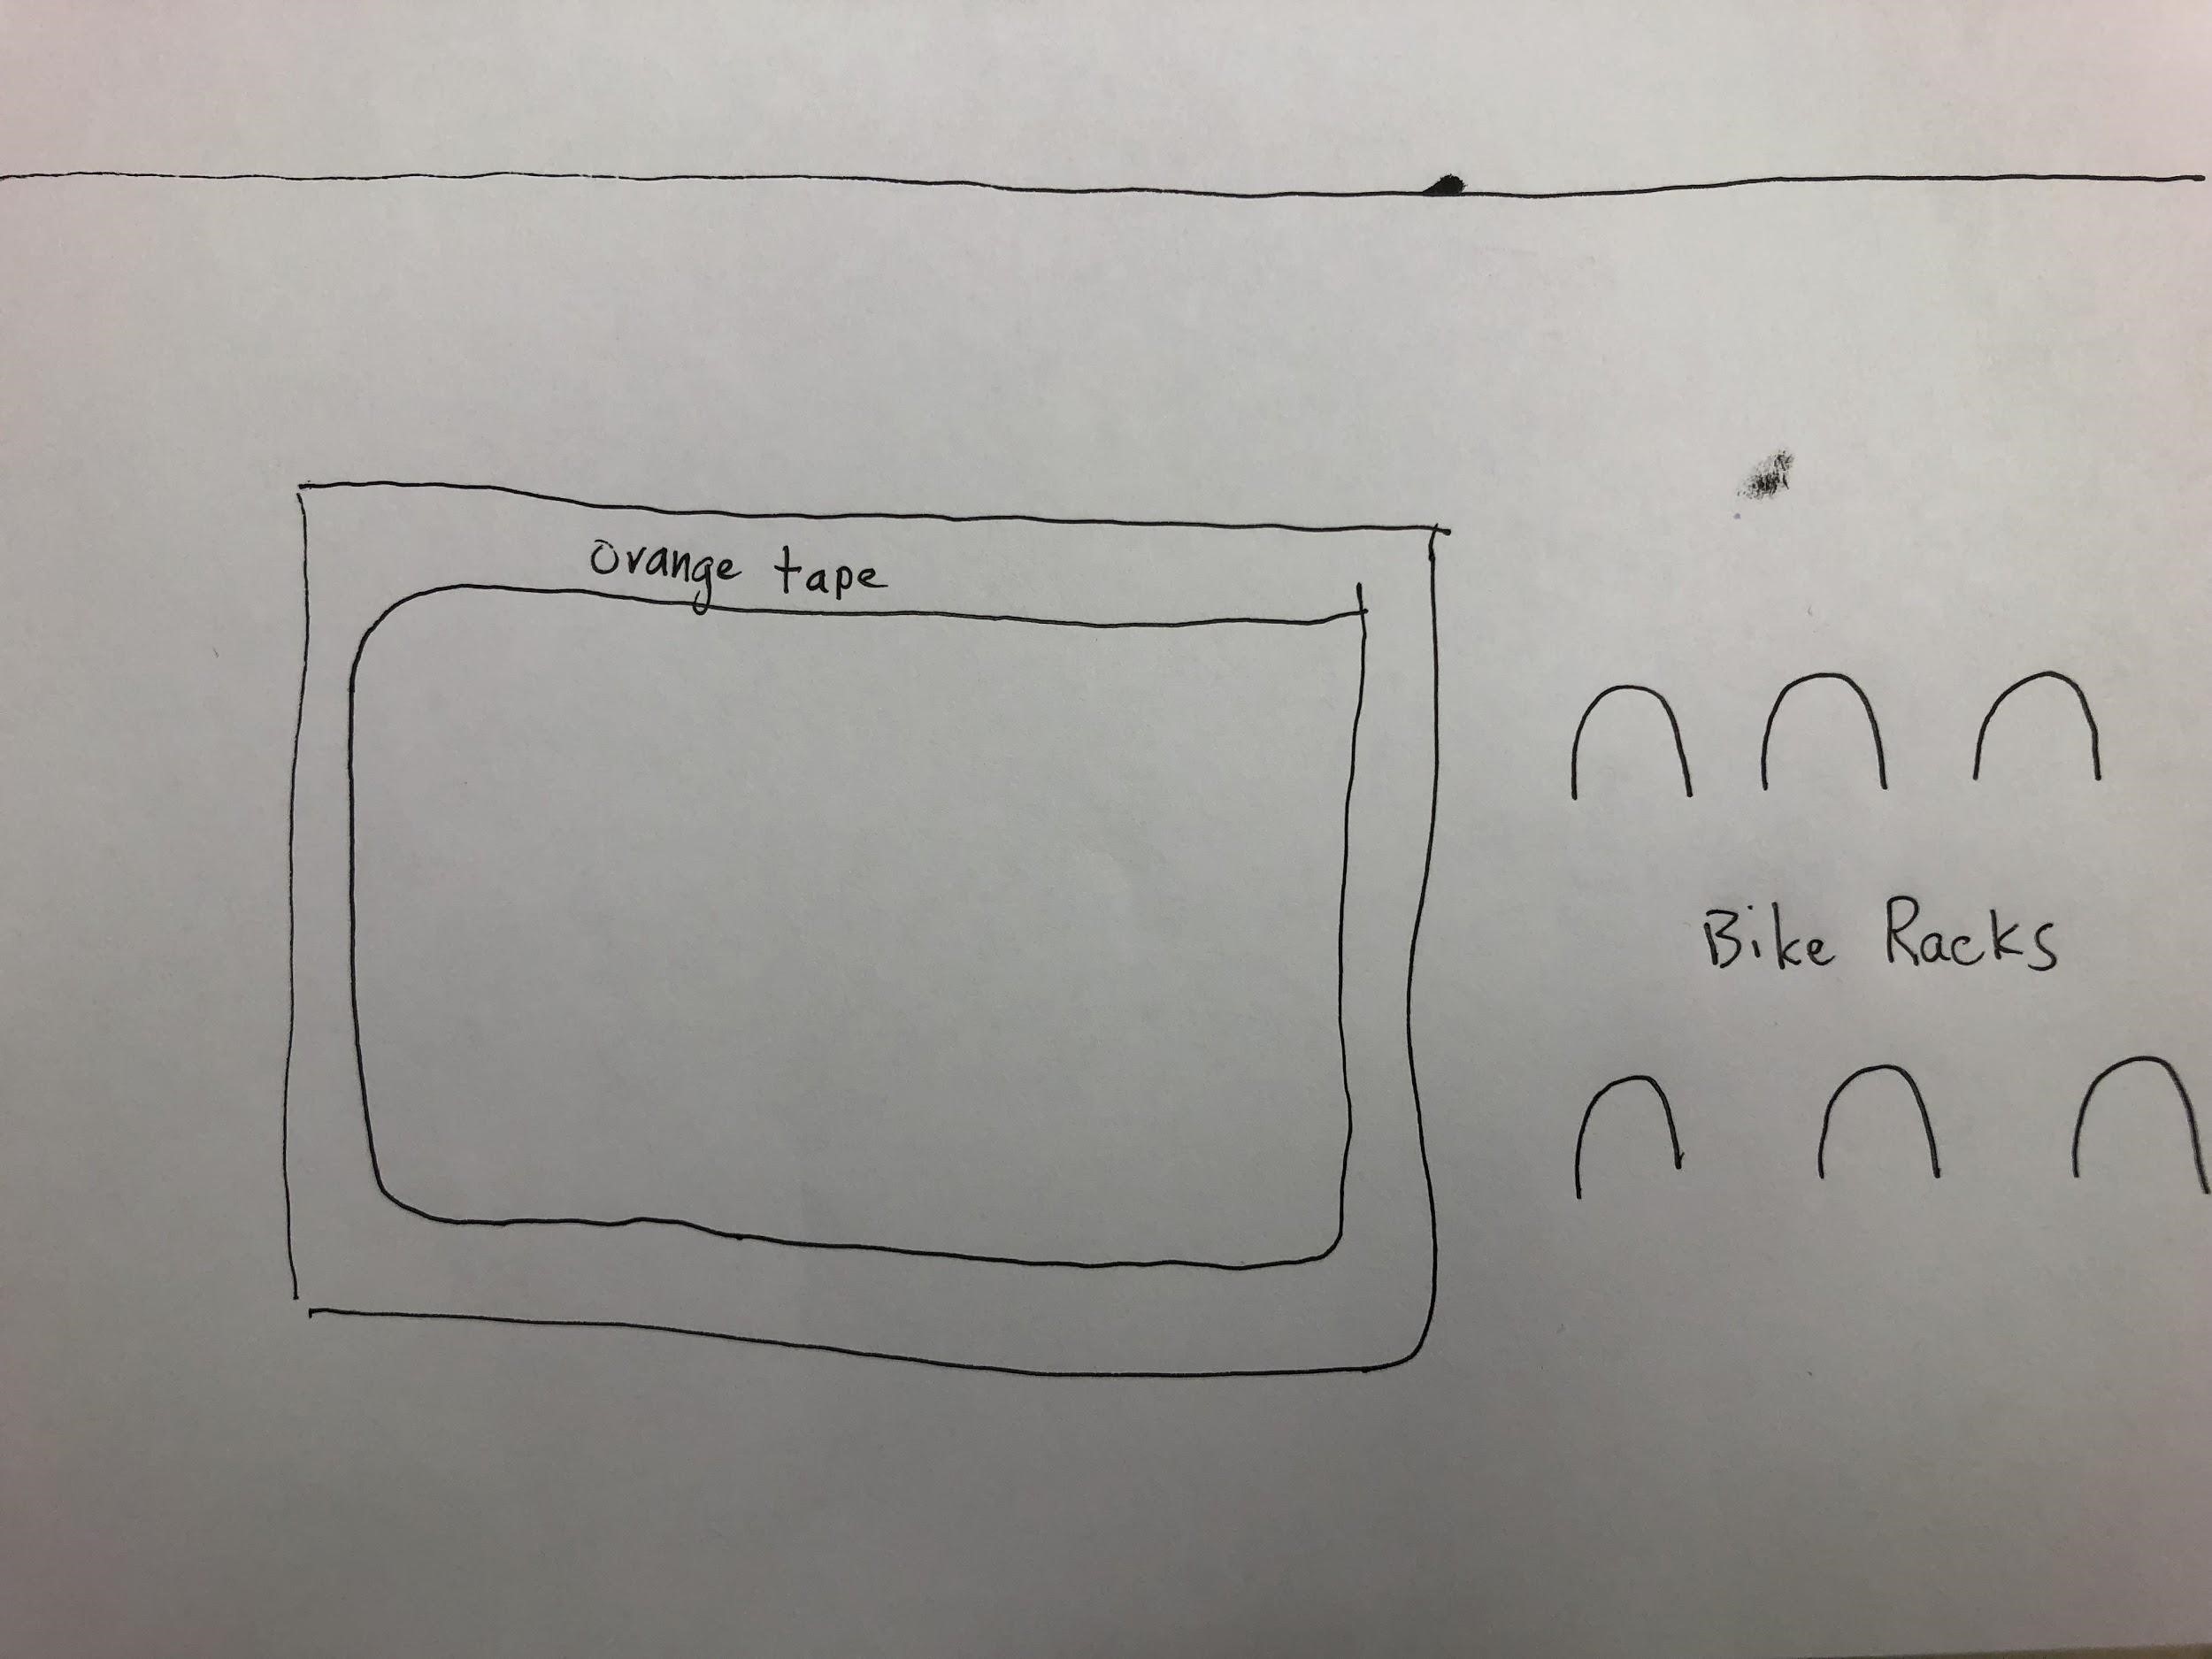 Orange tape
Bike Racks